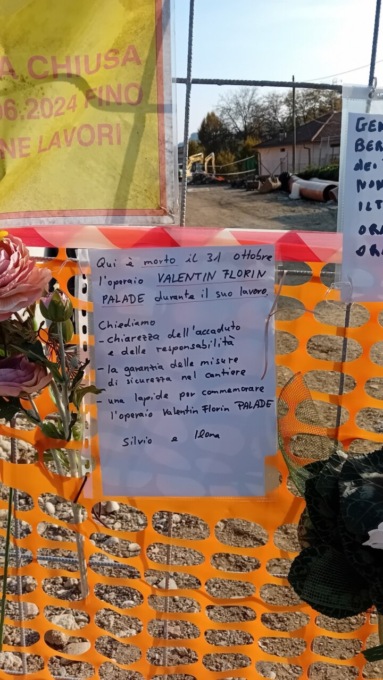 A CHIUSA
06.2024 FINO
NE LAVORI
Qui è morto il 31 ottobre
l'operaio VALENTIN FLORIN
PALADE durante il suo lavoro,
Chiediamo
- chiarezza dell'accaduto
e delle responsabilità
- la garanzia delle misure
di sicurezza nel cantiere
- una lapide per commemorare
l'operaio Valentin Florin PALADE
Silvio e Ilona
GEN
BER
dei
NON
IL T
ORA
ORA